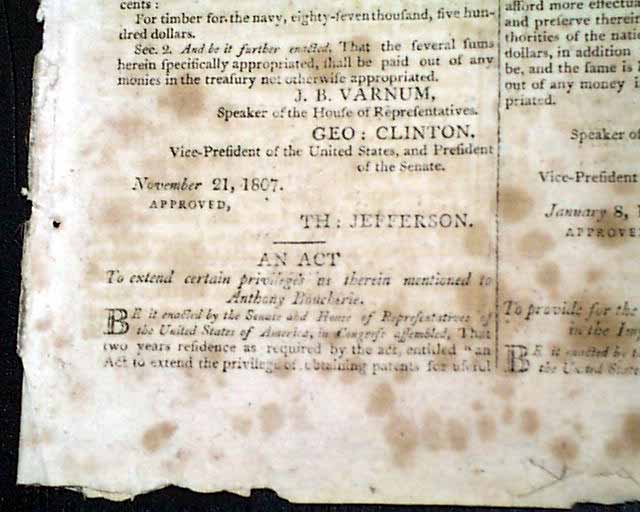 cents :
For timber for the navy, eighty-seven thousand, five hun-
dred dollars.
Sec. 2. And be it further enacted, That the several sums
herein specifically appropriated, shall be paid out of any
monies in the treasury not otherwise appropriated.
J. B. VARNUM,
Speaker of the House of Representatives.
GEO: CLINTON,
Vice-President of the United States, and President
of the Senate.
November 21, 1807.
APPROVED,
TH: JEFFERSON.
AN ACT
To extend certain privileges as therein mentioned to
Anthony Boucherie.
BE it enacted by the Senate and House of Representatives of
the United States of America, in Congress assembled, That
two years residence as required by the act, entitled "an
Act to extend the privilege of obtaining patents for useful
afford more effectua
and preserve therein
thorities of the natio
dollars, in addition
be, and the same is
out of any money i
priated.
Speaker of
Vice-President
January 8,
APPROVE
To provide for the
in the Imp
BE it enacted by t
the United State